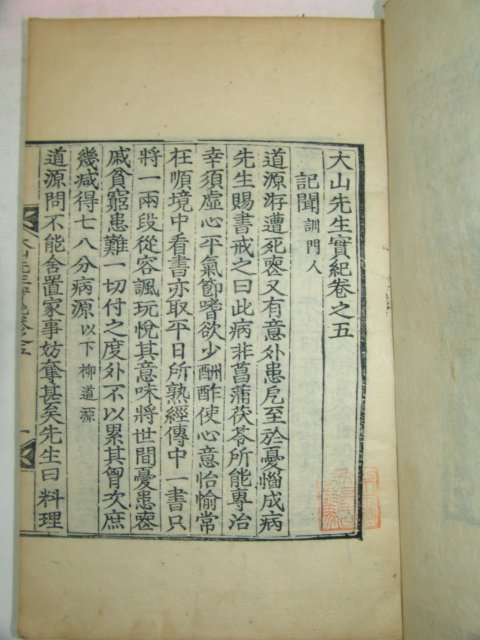 大山先生實紀卷之五
記聞 訓門人
道源洊遭死喪又有意外患戹至於憂惱成病
先生賜書戒之曰此病非菖蒲茯苓所能專治
幸須虛心平氣節嗜欲少酬酢使心意怡愉常
在順境中看書亦取平日所熟經傳中一書只
將一兩段從容諷玩悅其意味將世間憂患喪
戚貧窮患難一切付之度外不以累其胷次庶
幾減得七八分病源 以下柳道源
道源問不能舍置家事妨奪甚矣先生曰料理